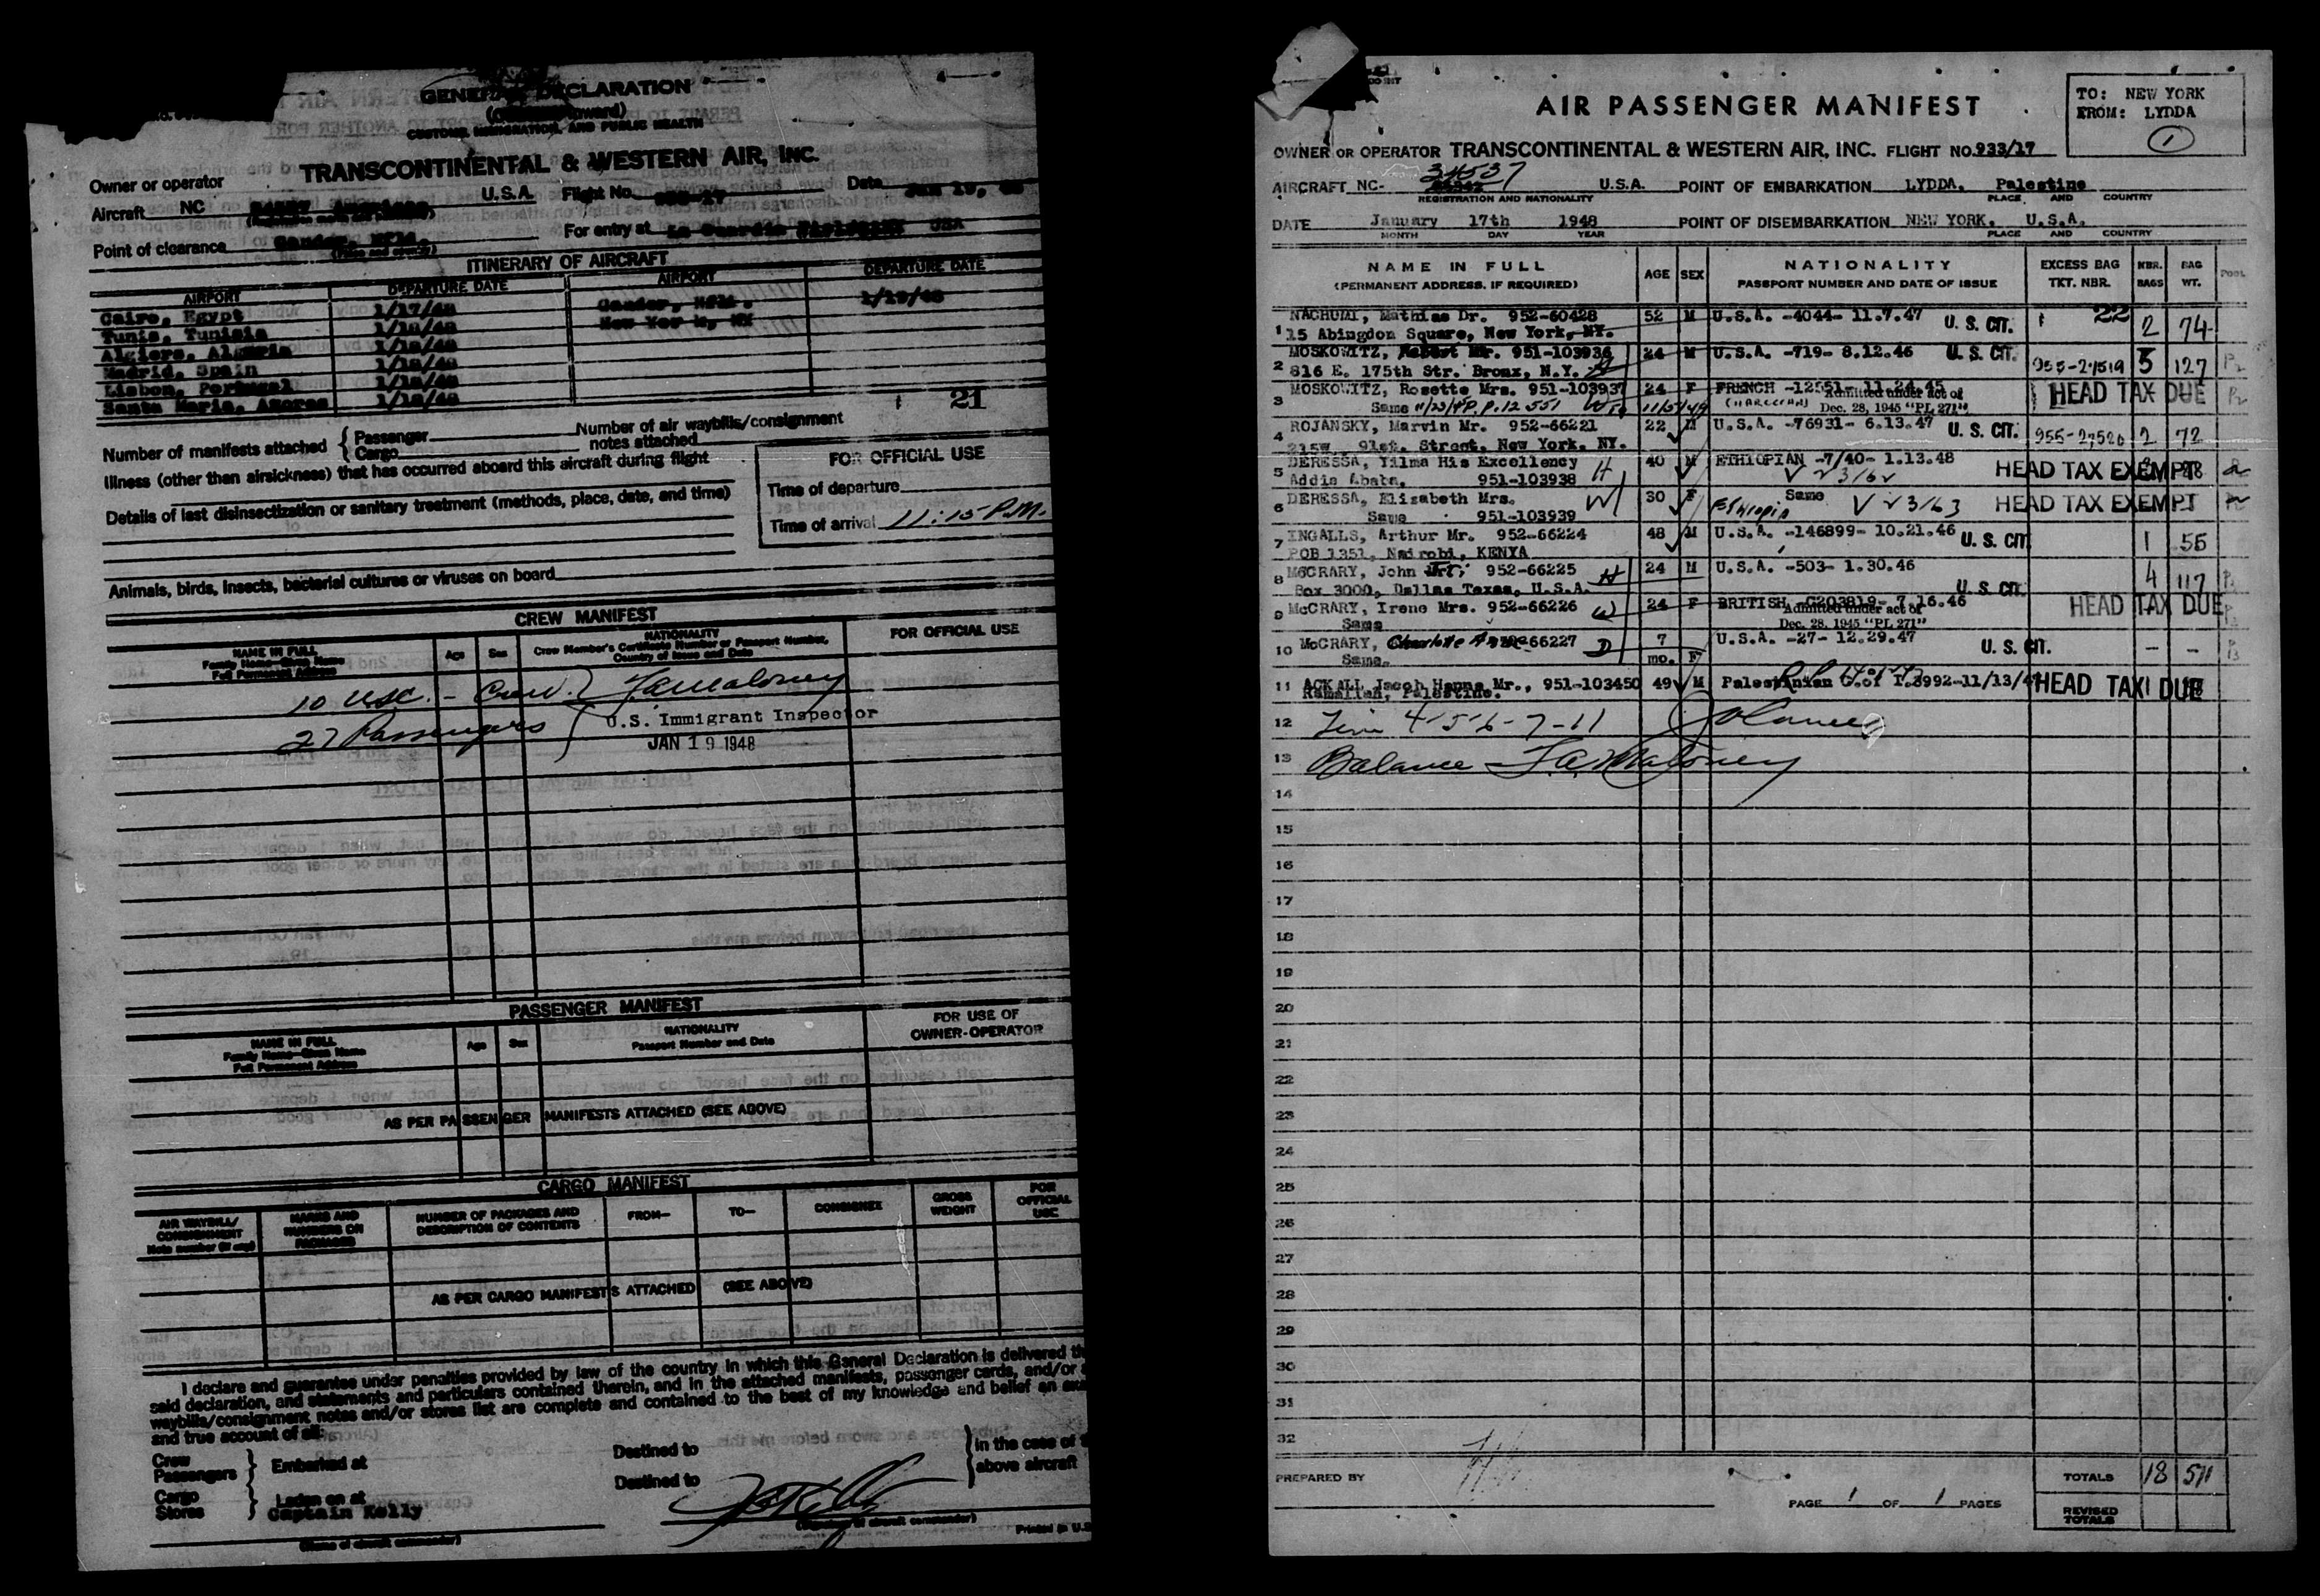 GENERAL DECLARATION
CUSTOMS, IMMIGRATION, AND PUBLIC HEALTH
TRANSCONTINENTAL & WESTERN AIR, INC.
Owner or operator
Aircraft NC U.S.A. Flight No. Date JAN 19, 48
Point of clearance Gander, Nfld. For entry at La Guardia USA
(Place and country)
ITINERARY OF AIRCRAFT
AIRPORT DEPARTURE DATE AIRPORT DEPARTURE DATE
Cairo, Egypt 1/17/48 Gander, Nfld. 1/19/48
Tunis, Tunisia 1/18/48 New York, NY
Algiers, Algeria 1/18/48
Madrid, Spain 1/18/48
Lisbon, Portugal 1/18/48
Santa Maria, Azores 1/18/48
21
Number of manifests attached { Passenger Number of air waybills/consignment
Cargo notes attached
Illness (other than airsickness) that has occurred aboard this aircraft during flight
FOR OFFICIAL USE
Details of last disinsectization or sanitary treatment (methods, place, date, and time)
Time of departure
Time of arrival 11:15 P.M.
Animals, birds, insects, bacterial cultures or viruses on board
CREW MANIFEST
NAME IN FULL
Family Name—Given Name
Full Permanent Address
Age Sex
NATIONALITY
Crew Member's Certificate Number or Passport Number,
Country of Issue and Date
FOR OFFICIAL USE
10 USC. - Crew. } F.A. Maloney
27 Passengers
U.S. Immigrant Inspector
JAN 19 1948
PASSENGER MANIFEST
NAME IN FULL
Family Name—Given Name
Full Permanent Address
Age Sex
NATIONALITY
Passport Number and Date
FOR USE OF
OWNER-OPERATOR
AS PER PASSENGER MANIFESTS ATTACHED (SEE ABOVE)
CARGO MANIFEST
AIR WAYBILL/
CONSIGNMENT
Note number (if any)
MARKS AND
NUMBERS ON
PACKAGES
NUMBER OF PACKAGES AND
DESCRIPTION OF CONTENTS
FROM—
TO—
CONSIGNEE
GROSS
WEIGHT
FOR
OFFICIAL
USE
AS PER CARGO MANIFESTS ATTACHED (SEE ABOVE)
I declare and guarantee under penalties provided by law of the country in which this General Declaration is delivered
said declaration, and statements and particulars contained therein, and in the attached manifests, passenger cards, and/or
waybills/consignment notes and/or stores list are complete and contained to the best of my knowledge and belief an
and true account of all:
Crew
Passengers } Embarked at Destined to
Cargo
Stores } Laden on at Destined to
in the case of
above aircraft
Captain Kelly
(Name of aircraft commander)
(Signature of aircraft commander)
Printed in U.S.
AIR PASSENGER MANIFEST
TO: NEW YORK
FROM: LYDDA
1
OWNER OR OPERATOR TRANSCONTINENTAL & WESTERN AIR, INC. FLIGHT NO. 933/17
AIRCRAFT NC- 34537 U.S.A. POINT OF EMBARKATION LYDDA, Palestine
REGISTRATION AND NATIONALITY PLACE AND COUNTRY
DATE January 17th 1948 POINT OF DISEMBARKATION NEW YORK, U.S.A.
MONTH DAY YEAR PLACE AND COUNTRY
NAME IN FULL
(PERMANENT ADDRESS, IF REQUIRED)
AGE SEX
NATIONALITY
PASSPORT NUMBER AND DATE OF ISSUE
EXCESS BAG
TKT. NBR.
NBR.
BAGS
BAG
WT.
POOL
22
1 NACHUMI, Mathias Dr. 952-60428 52 M U.S.A. -4044- 11.7.47 U. S. CIT. 2 74
15 Abingdon Square, New York, NY.
2 MOSKOWITZ, Robert Mr. 951-103936 24 M U.S.A. -719- 8.12.46 U. S. CIT. 955-27519 5 127
816 E. 175th Str. Bronx, N.Y.
3 MOSKOWITZ, Rosette Mrs. 951-103937 24 F FRENCH -12551- 11.24.45 HEAD TAX DUE
Same Admitted under act of
Dec. 28, 1945 "PL 271"
4 ROJANSKY, Marvin Mr. 952-66221 22 M U.S.A. -76931- 6.13.47 U. S. CIT. 955-27520 2 72
215W. 91st. Street, New York. NY.
5 DERESSA, Yilma His Excellency H 40 M ETHIOPIAN -7/40- 1.13.48 HEAD TAX EXEMPT
Addis Ababa. 951-103938 V 23162
6 DERESSA, Elizabeth Mrs. W 30 F Same V 23163 HEAD TAX EXEMPT
Same 951-103939 Ethiopia
7 INGALLS, Arthur Mr. 952-66224 48 M U.S.A. -146899- 10.21.46 U. S. CIT. 1 55
POB 1351, Nairobi, KENYA
8 McCRARY, John 952-66225 H 24 M U.S.A. -503- 1.30.46 U. S. CIT. 4 117
Box 3000, Dallas Texas, U.S.A.
9 McCRARY, Irene Mrs. 952-66226 W 24 F BRITISH -C203819- 7.16.46 HEAD TAX DUE
Same Admitted under act of
Dec. 28, 1945 "PL 271"
10 McCRARY, Charlotte 66227 D 7 mo. F U.S.A. -27- 12.29.47 U. S. CIT. - -
Same.
11 ACKALL Jacob Hanna Mr., 951-103450 49 M Palestinian HEAD TAX DUE
Ramallah, Palestine.
12 4-5-6-7-11
13 Balance F.A. Maloney
14
15
16
17
18
19
20
21
22
23
24
25
26
27
28
29
30
31
32
PREPARED BY
PAGE 1 OF 1 PAGES
TOTALS 18 511
REVISED
TOTALS